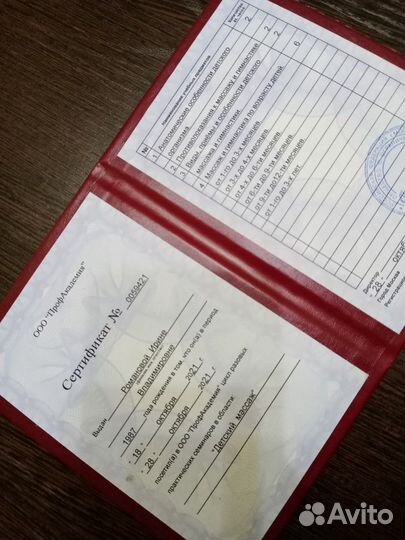 ООО "ПрофАкадемия"
Сертификат № 0059421
Выдан Романовой Ирине
Владимировне
1987 года рождения в том, что он(а) в период
- 18 - октября 2021 г
- 28 - октября 2021 г
посетил(а) в ООО "ПрофАкадемия" цикл разовых
практических семинаров в области:
"Детский массаж"
№ Наименование учебных предметов
1 Анатомические особенности детского
организма 2
2 Противопоказания к массажу и гимнастике 2
3 Виды, приемы и особенности детского
массажа и гимнастики 2
4 Массаж и гимнастика по возрасту детей 6
от 1-го до 3-х месяцев
от 3-х до 4-х месяцев
от 4-х до 6-ти месяцев
от 6-ти до 9-ти месяцев
от 9-ти до12-ти месяцев
от 1-го до 3-х лет
Директор
- 28 -
Город Москва
Avito